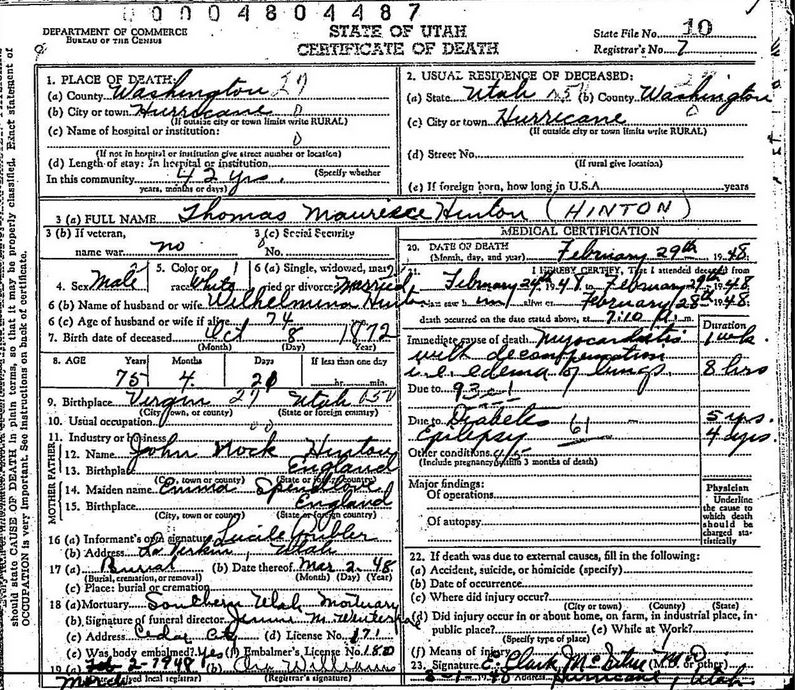 00004804487
DEPARTMENT OF COMMERCE
BUREAU OF THE CENSUS
STATE OF UTAH
CERTIFICATE OF DEATH
State File No. 10
Registrar's No. 7
1. PLACE OF DEATH:
(a) County Washington 27
(b) City or town Hurricane 0
(If outside city or town limits write RURAL)
(c) Name of hospital or institution: 0
(If not in hospital or institution give street number or location)
(d) Length of stay: In hospital or institution
(Specify whether
In this community 42 yrs.
years, months or days)
2. USUAL RESIDENCE OF DECEASED:
(a) State Utah (b) County Washington
(c) City or town Hurricane 0
(If outside city or town limits write RURAL)
(d) Street No.
(If rural give location)
(e) If foreign born, how long in U.S.A. years
3 (a) FULL NAME Thomas Maurice Hinton (HINTON)
3 (b) If veteran,
name war. no
3 (c) Social Security
No.
4. Sex Male
5. Color or
race White
6 (a) Single, widowed, mar-
ried or divorced Married
6 (b) Name of husband or wife Wilhelmina Hinton
6 (c) Age of husband or wife if alive 74
7. Birth date of deceased Oct 8 1872
(Month) (Day) (Year)
8. AGE Years Months Days If less than one day
75 4 21 hr. min.
9. Birthplace Virgin 27 Utah
(City, town, or county) (State or foreign country)
10. Usual occupation
11. Industry or business
MOTHER FATHER
12. Name John Nock Hinton
13. Birthplace England
(City, town or county) (State or foreign country)
14. Maiden name Emma
15. Birthplace England
(City, town, or county) (State or foreign country)
16 (a) Informant's own signature Lucile
(b) Address La Verkin, Utah
17 (a) Burial (b) Date thereof Mar 2 - 48
(Burial, cremation, or removal) (Month) (Day) (Year)
(c) Place: burial or cremation
18 (a) Mortuary Southern Utah Mortuary
(b) Signature of funeral director
(c) Address Cedar City (d) License No. 171
(e) Was body embalmed? Yes (f) Embalmer's License No. 180
19 (a) 2-1948 (b)
March (Date received local registrar) (Registrar's signature)
MEDICAL CERTIFICATION
20. DATE OF DEATH
(Month, day, and year) February 29th 1948
21. I HEREBY CERTIFY, That I attended deceased from
February 24th 1948 to February 29th 1948
I last saw him alive on February 28th 1948
death occurred on the date stated above, at 7:10 m.
Duration
Immediate cause of death Myocarditis 1 wk.
with decompensation
i.e. edema of lungs 8 hrs
Due to 93
Due to Diabetes 61 5 yrs.
Epilepsy 4 yrs
Other conditions
(Include pregnancy within 3 months of death)
Major findings:
Of operations
Of autopsy
Physician
Underline
the cause to
which death
should be
charged sta-
tistically
22. If death was due to external causes, fill in the following:
(a) Accident, suicide, or homicide (specify)
(b) Date of occurrence
(c) Where did injury occur?
(City or town) (County) (State)
(d) Did injury occur in or about home, on farm, in industrial place, in
public place? (e) While at Work?
(Specify type of place)
(f) Means of injury
23. Signature E. Clark McIntire M.D. (M.D. or other)
Hurricane, Utah
should state CAUSE OF DEATH in plain terms, so that it may be properly classified. Exact statement of
OCCUPATION is very important. See instructions on back of certificate.